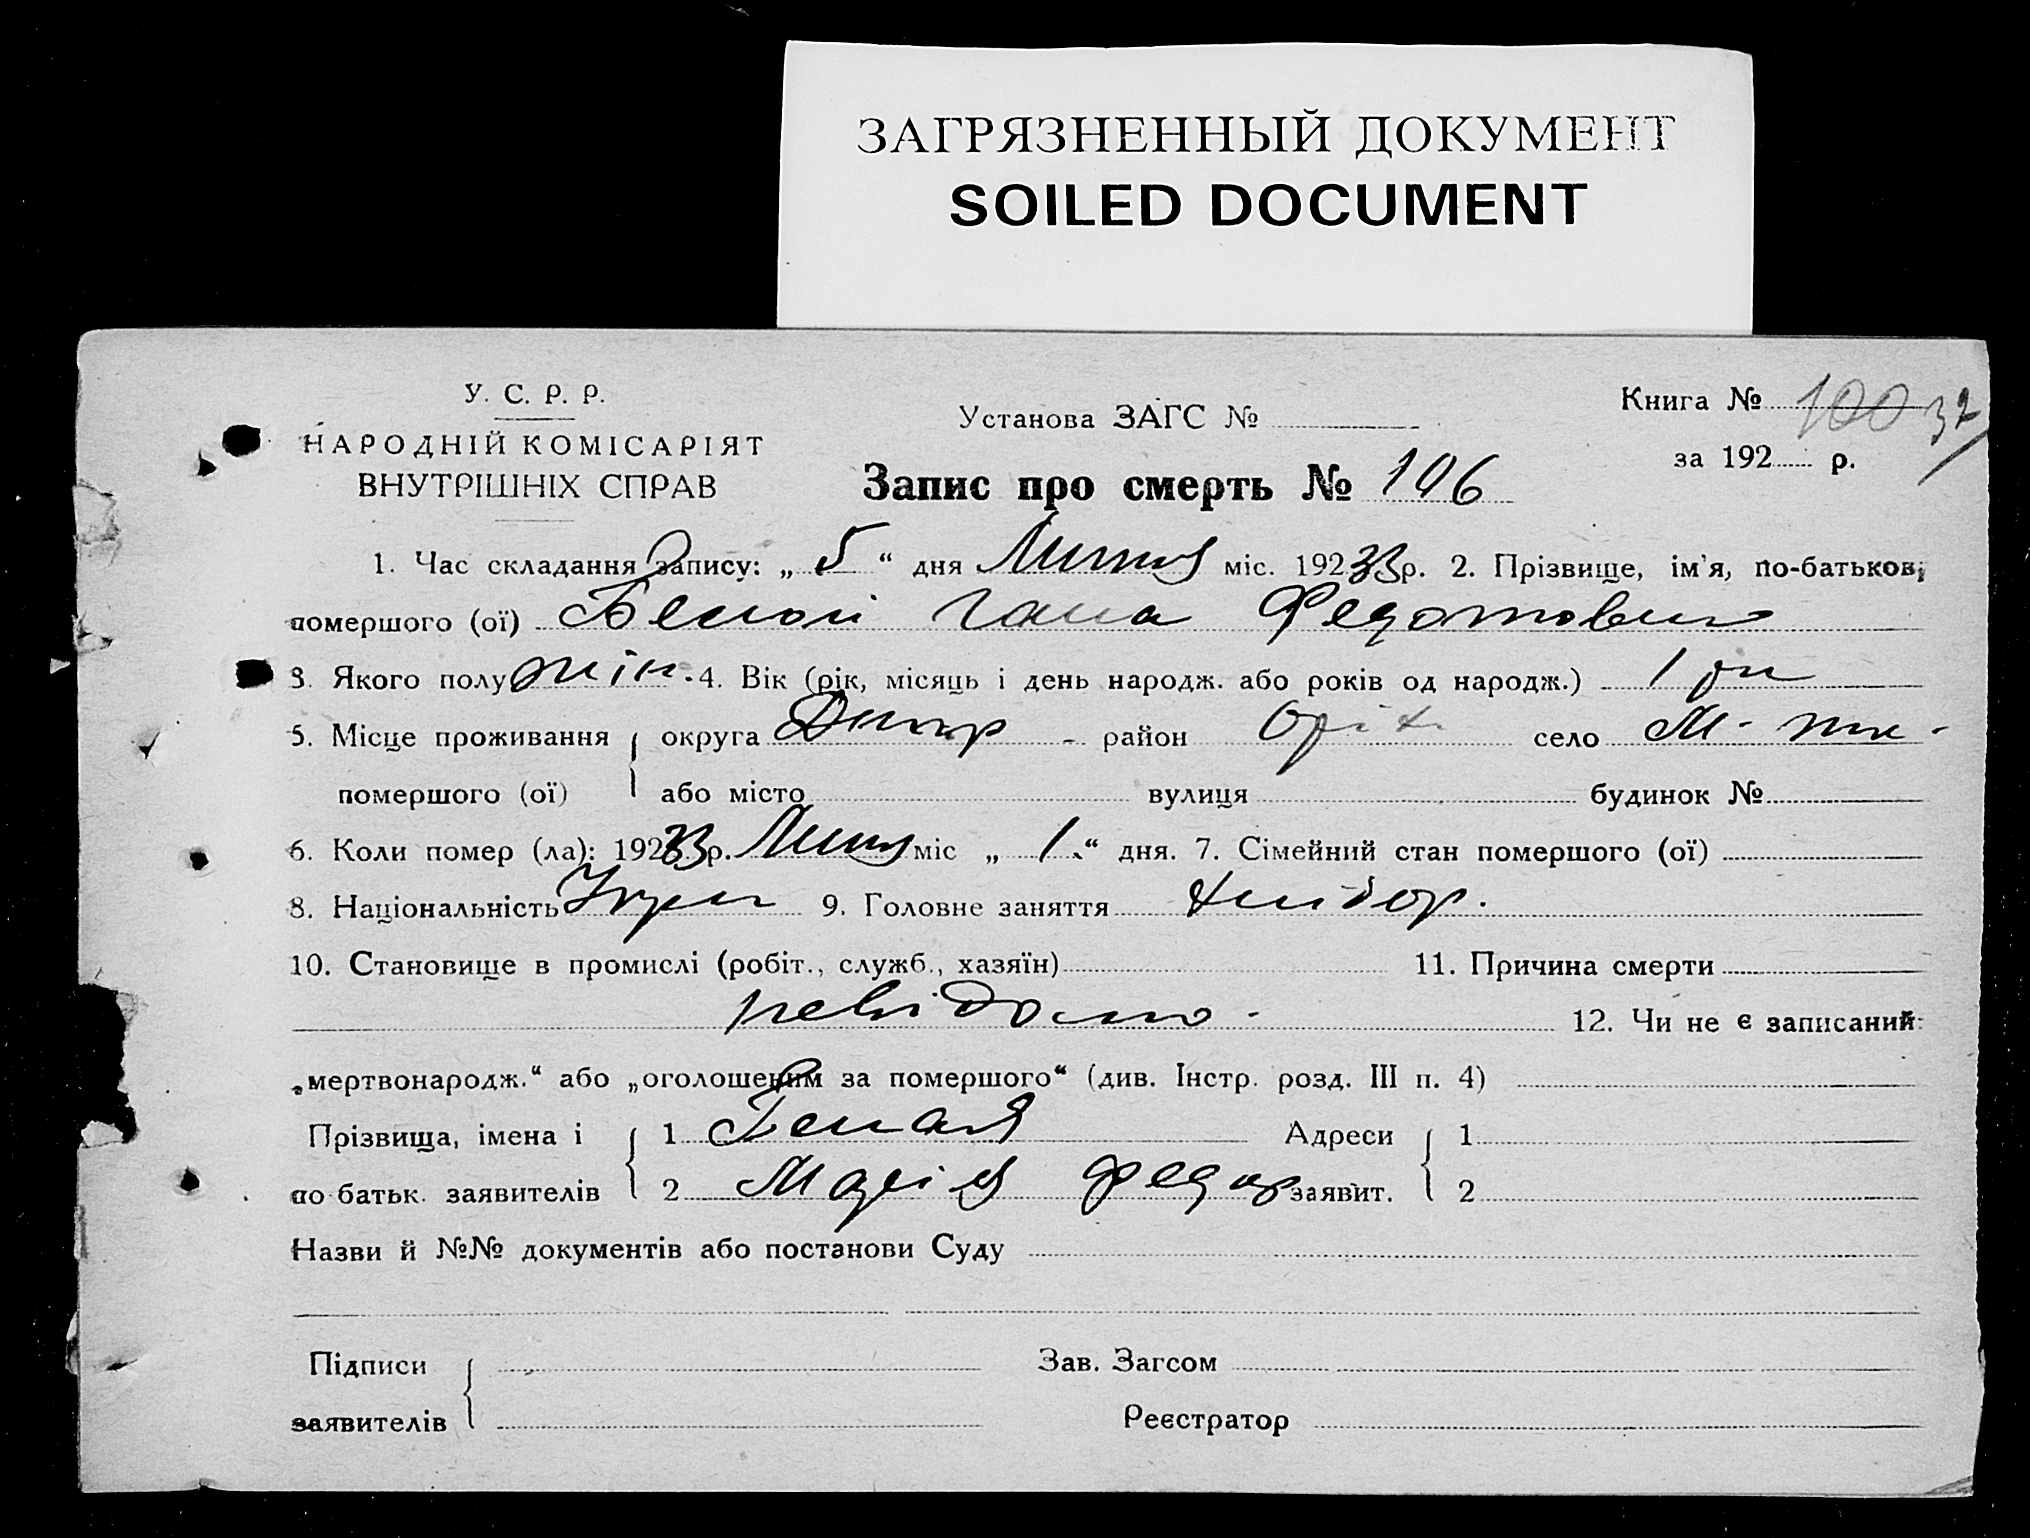 ЗАГРЯЗНЕННЫЙ ДОКУМЕНТ
SOILED DOCUMENT
У. С. Р. Р.
НАРОДНІЙ КОМІСАРІЯТ
ВНУТРІШНІХ СПРАВ
Установа ЗАГС №
Книга № 100 32
за 192 р.
Запис про смерть № 106
1. Час складання запису: „ 5 “ дня Липня міс. 192 33 р. 2. Прізвище, ім'я, по-батькові
помершого (ої) Гана Федотовна
3. Якого полу жін. 4. Вік (рік, місяць і день народж. або років од народж.) 1
5. Місце проживання округа Дніпр район Оріх село
помершого (ої) або місто вулиця будинок №
6. Коли помер (ла): 192 33 р. Липня міс „ 1 “ дня. 7. Сімейний стан помершого (ої)
8. Національність Укр 9. Головне заняття хлібор.
10. Становище в промислі (робіт., служб., хазяїн) 11. Причина смерти
невідомо. 12. Чи не є записаний:
„мертвонародж.“ або „оголошеним за помершого“ (див. Інстр. розд. III п. 4)
Прізвища, імена і 1 Адреси 1
по батьк. заявителів 2 Марія Федор заявит. 2
Назви й №№ документів або постанови Суду
Підписи Зав. Загсом
заявителів Реєстратор